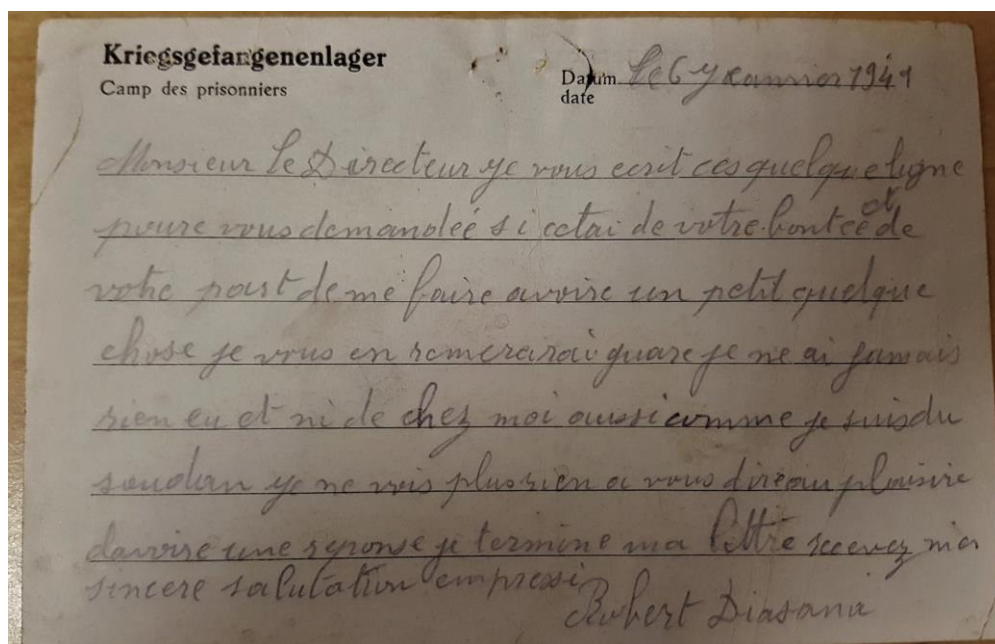 Kriegsgefangenenlager
Camp des prisonniers
Datum le 6 yeanvier 1941
date
Monsieur le Directeur ye vous ecrit ces quelque ligne
poure vous demandée si cetai de votre bontée et de
votre part de me faire avoire un petit quelque
chose je vous en remerarai quare je ne ai jamais
rien eu et ni de chez moi aussi comme je suis du
soudan ye ne vois plus rien a vous dire au plaisire
davoire une reponse je termine ma lettre recevez mes
sincere salutation empressi
Robert Diasana